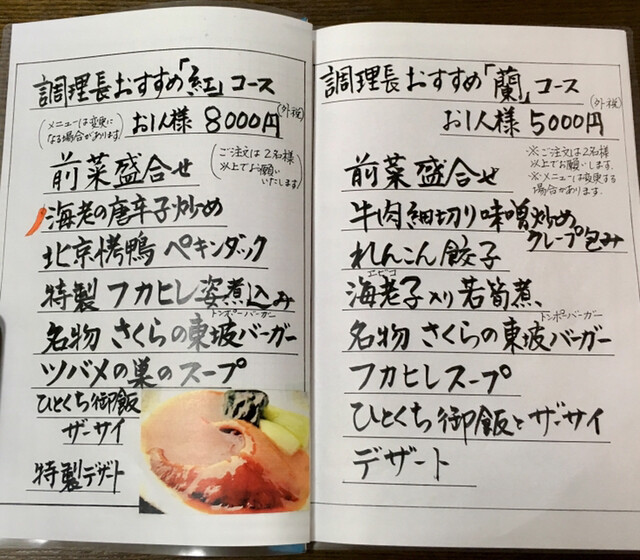 調理長おすすめ「紅」コース
(外税)
(メニューは変更に
なる場合があります)
お1人様 8000円
(ご注文は2名様
以上でお願い
いたします)
前菜盛合せ
海老の唐辛子炒め
北京烤鴨 ペキンダック
特製 フカヒレ姿煮込み
トンポーバーガー
名物 さくらの東坡バーガー
ツバメの巣のスープ
ひとくち御飯
ザーサイ
特製デザート
調理長おすすめ「蘭」コース
(外税)
お1人様 5000円
※ご注文は2名様
以上でお願いします。
※メニューは変更する
場合があります。
前菜盛合せ
牛肉細切り味噌炒め
クレープ包み
れんこん餃子
エビコ
海老子入り若筍煮
トンポーバーガー
名物 さくらの東坡バーガー
フカヒレスープ
ひとくち御飯とザーサイ
デザート